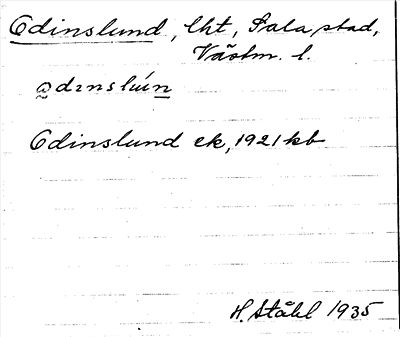 Odinslund, lht, Sala stad,
Västm. l.
ωdɪnsluń
Odinslund ek, 1921 kb
H. Ståhl 1935